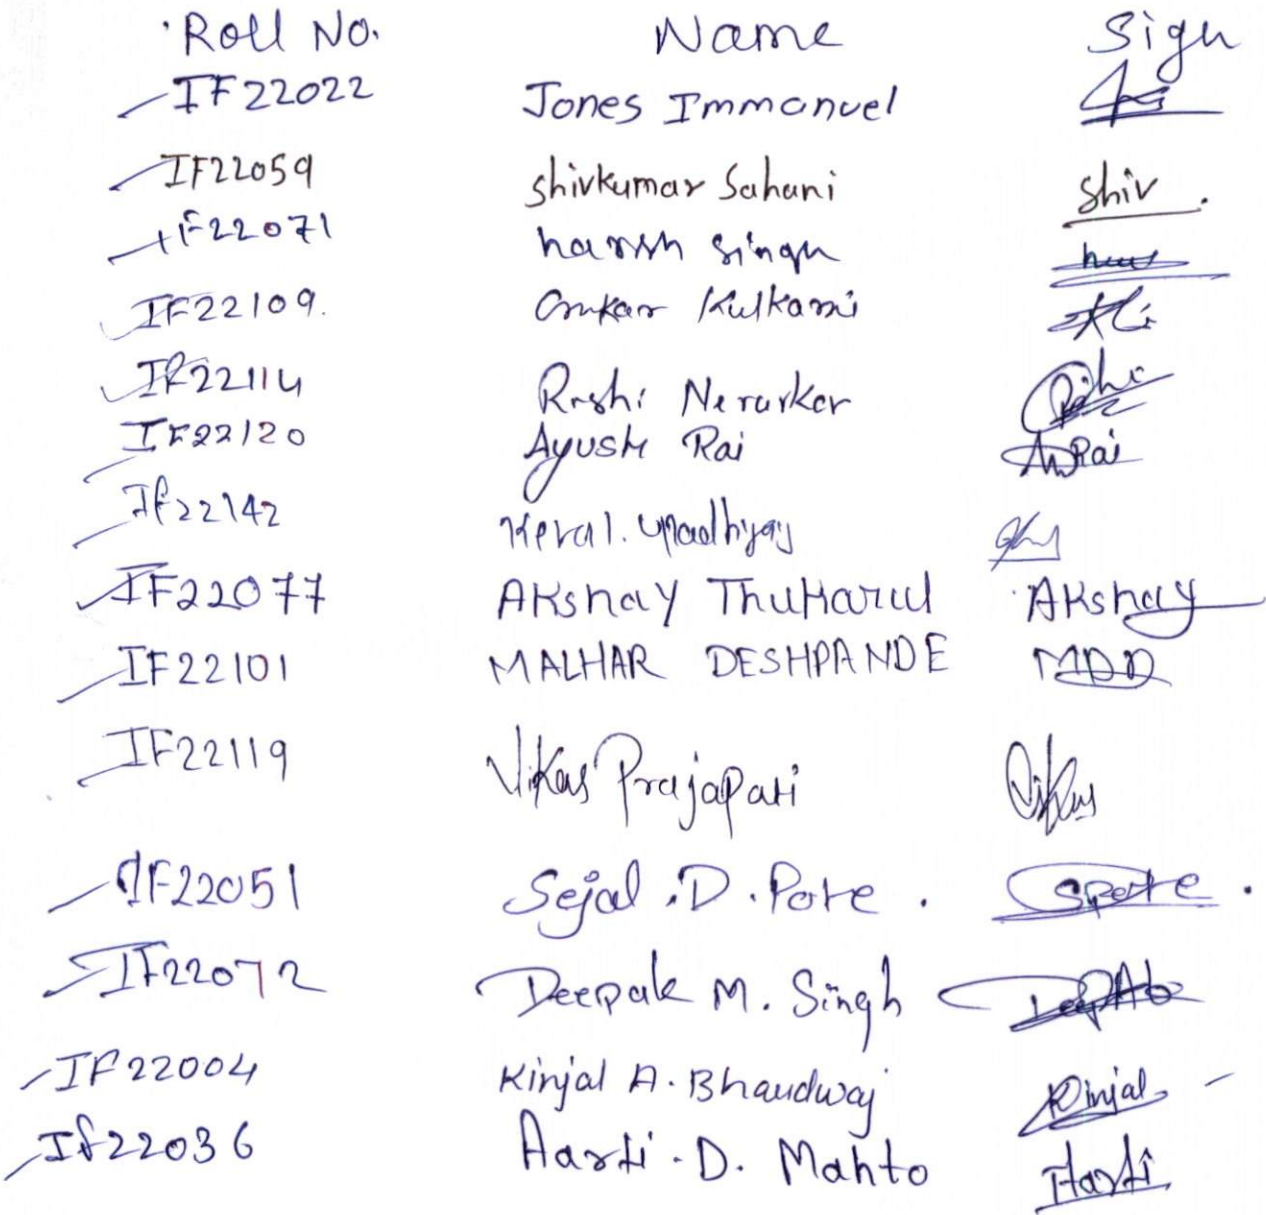 Roll No. Name Sign
IF22022 Jones Immanuel
IF22059 Shivkumar Sahani Shiv.
IF22071 harsh singh
IF22109. Omkar Kulkarni
IF22114 Rashi Nerurkar
IF22120 Ayush Rai ARai
If22142 Keval. Upadhyay
IF22077 Akshay Thukarul Akshay
IF22101 MALHAR DESHPANDE MDD
IF22119 Vikas Prajapati Vikas
IF22051 Sejal .D. Pote . SPote .
IF22072 Deepak M. Singh Deepak
IF22004 Kinjal A. Bhardwaj Kinjal
If22036 Aarti .D. Mahto Aarti